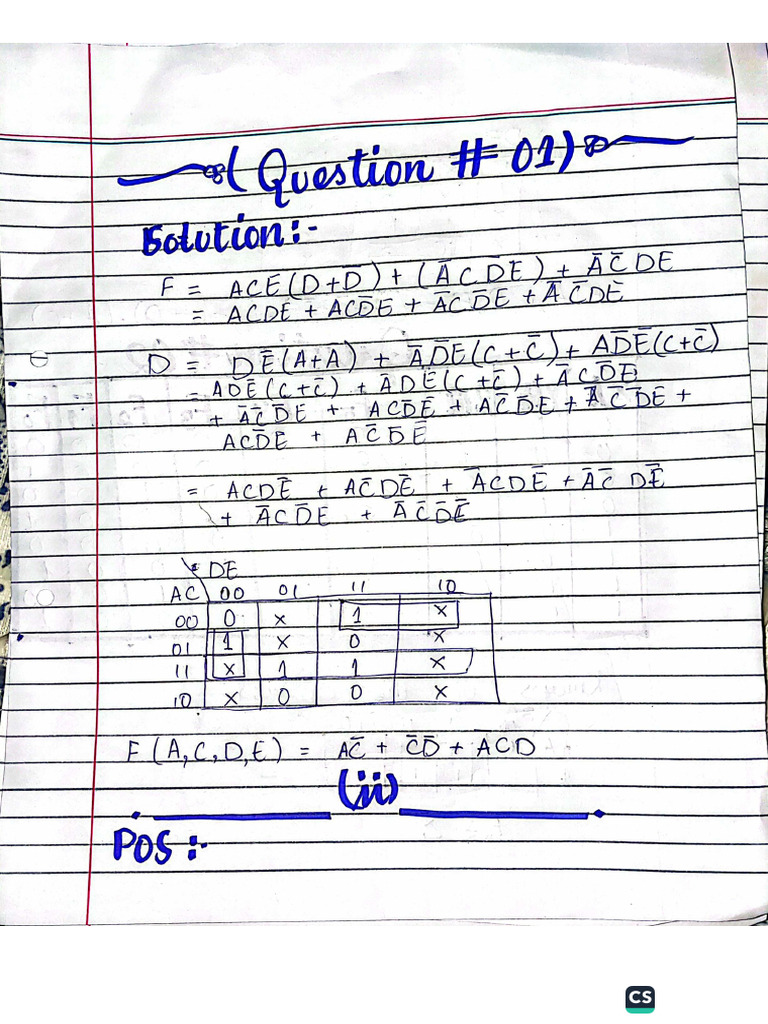 (Question # 01)
Solution:-
F = ACE(D+D̅) + (A̅CD̅E̅) + A̅C̅DE
= ACDE + ACD̅E + A̅CD̅E̅ + A̅C̅DE
D = DE̅(A+A̅) + A̅D̅E(C+C̅) + AD̅E̅(C+C̅)
= ADE̅(C+C̅) + A̅DE̅(C+C̅) + A̅CD̅E
+ A̅C̅D̅E + ACD̅E̅ + AC̅D̅E + A̅C̅D̅E +
ACD̅E + AC̅D̅E̅
= ACDE̅ + AC̅DE̅ + A̅CDE̅ + A̅C̅DE̅
+ A̅CD̅E + A̅C̅D̅E̅
DE
AC 00 01 11 10
00 0 x 1 x
01 1 x 0 x
11 x 1 1 x
10 x 0 0 x
F(A,C,D,E) = AC̅ + C̅D̅ + A̅CD
(ii)
POS:-
CS